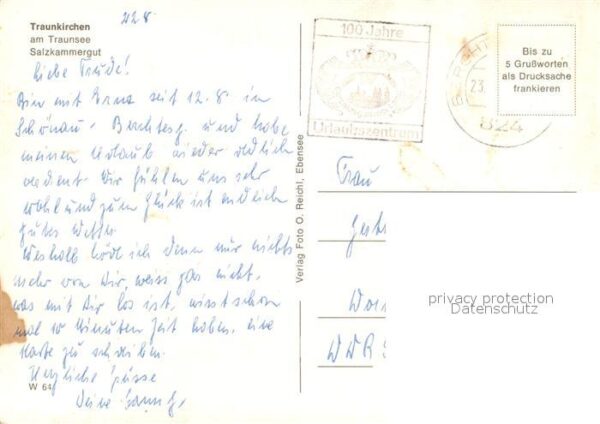 Traunkirchen
am Traunsee
Salzkammergut
22.8
Liebe Trude!
Bin mit Franz seit 12.8. in
Schönau - Berchtesg. und habe
meinen Urlaub wieder redlich
verdient. Wir fühlen uns sehr
wohl und zum Glück ist endlich
gutes Wetter.
Weshalb hört ich denn nur nichts
mehr von Dir, weiss gar nicht,
was mit Dir los ist, wirst schon
mal 10 Minuten Zeit haben, eine
Karte zu schreiben.
Herzliche Grüsse
Deine
W 64
Verlag Foto O. Reichl, Ebensee
100 Jahre
Urlaubszentrum
23.
824
Bis zu
5 Grußworten
als Drucksache
frankieren
Frau
privacy protection
Datenschutz